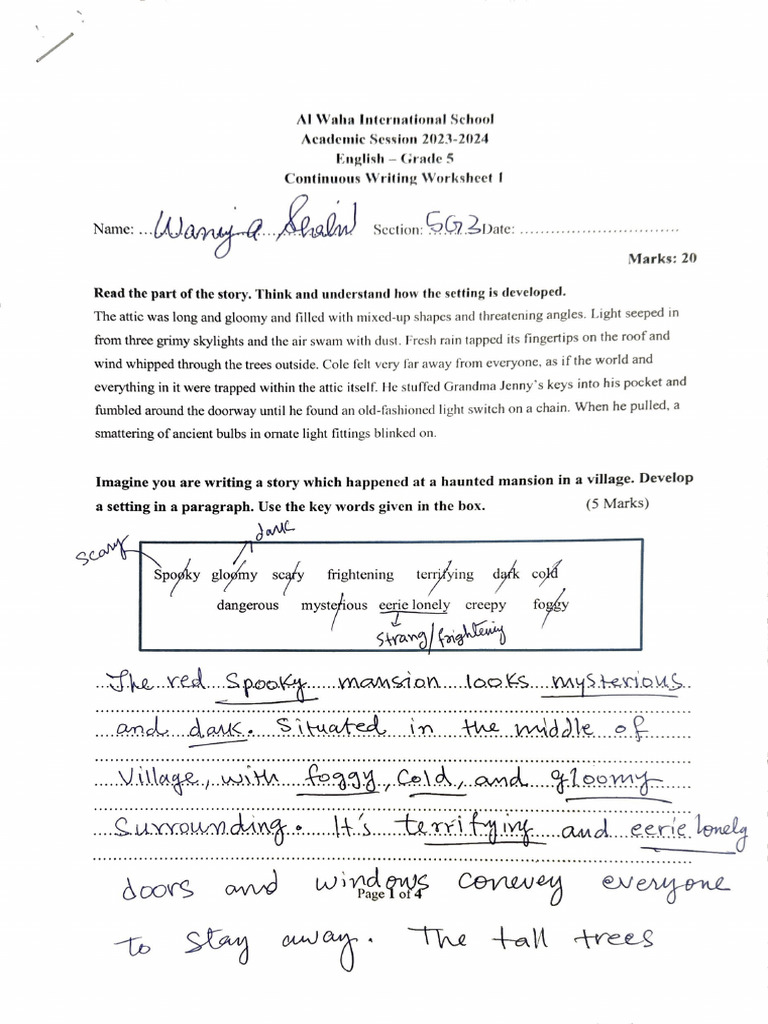 Al Waha International School
Academic Session 2023-2024
English – Grade 5
Continuous Writing Worksheet 1
Name: ... Wanija Shahid Section: 5G3 Date: ................................
Marks: 20
Read the part of the story. Think and understand how the setting is developed.
The attic was long and gloomy and filled with mixed-up shapes and threatening angles. Light seeped in
from three grimy skylights and the air swam with dust. Fresh rain tapped its fingertips on the roof and
wind whipped through the trees outside. Cole felt very far away from everyone, as if the world and
everything in it were trapped within the attic itself. He stuffed Grandma Jenny's keys into his pocket and
fumbled around the doorway until he found an old-fashioned light switch on a chain. When he pulled, a
smattering of ancient bulbs in ornate light fittings blinked on.
Imagine you are writing a story which happened at a haunted mansion in a village. Develop
a setting in a paragraph. Use the key words given in the box. (5 Marks)
scary dark
Spooky gloomy scary frightening terrifying dark cold
dangerous mysterious eerie lonely creepy foggy
strang/frightenig
The red Spooky mansion looks mysterious
and dark. Situated in the middle of
Village, with foggy, cold, and gloomy
Surrounding. It's terrifying and eerie lonely
doors and windows conevey everyone
Page 1 of 4
to stay away. The tall trees